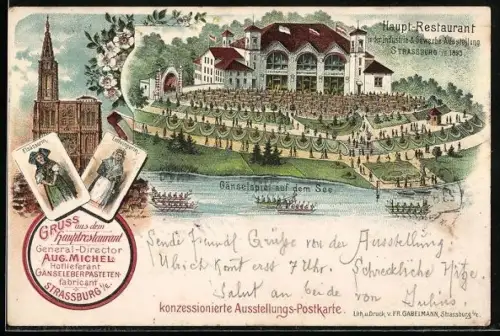 Haupt-Restaurant
in der Industrie & Gewerbe Ausstellung
STRASSBURG i/E. 1895.
Elsässerin.
Gänselspiel auf dem See
GRUSS aus dem
Hauptrestaurant
General-Director
AUG. MICHEL
Hoflieferant
GÄNSELEBERPASTETEN-
fabricant
STRASSBURG i/E.
Sende Freundl Grüsse von der Ausstellung
Ulrich kont erst 7 Uhr. Schreckliche Hitze.
Salut an beide von
Julius.
konzessionierte Ausstellungs-Postkarte.
Lith. u. Druck. v. FR. GABELMANN, Strassburg i/E.